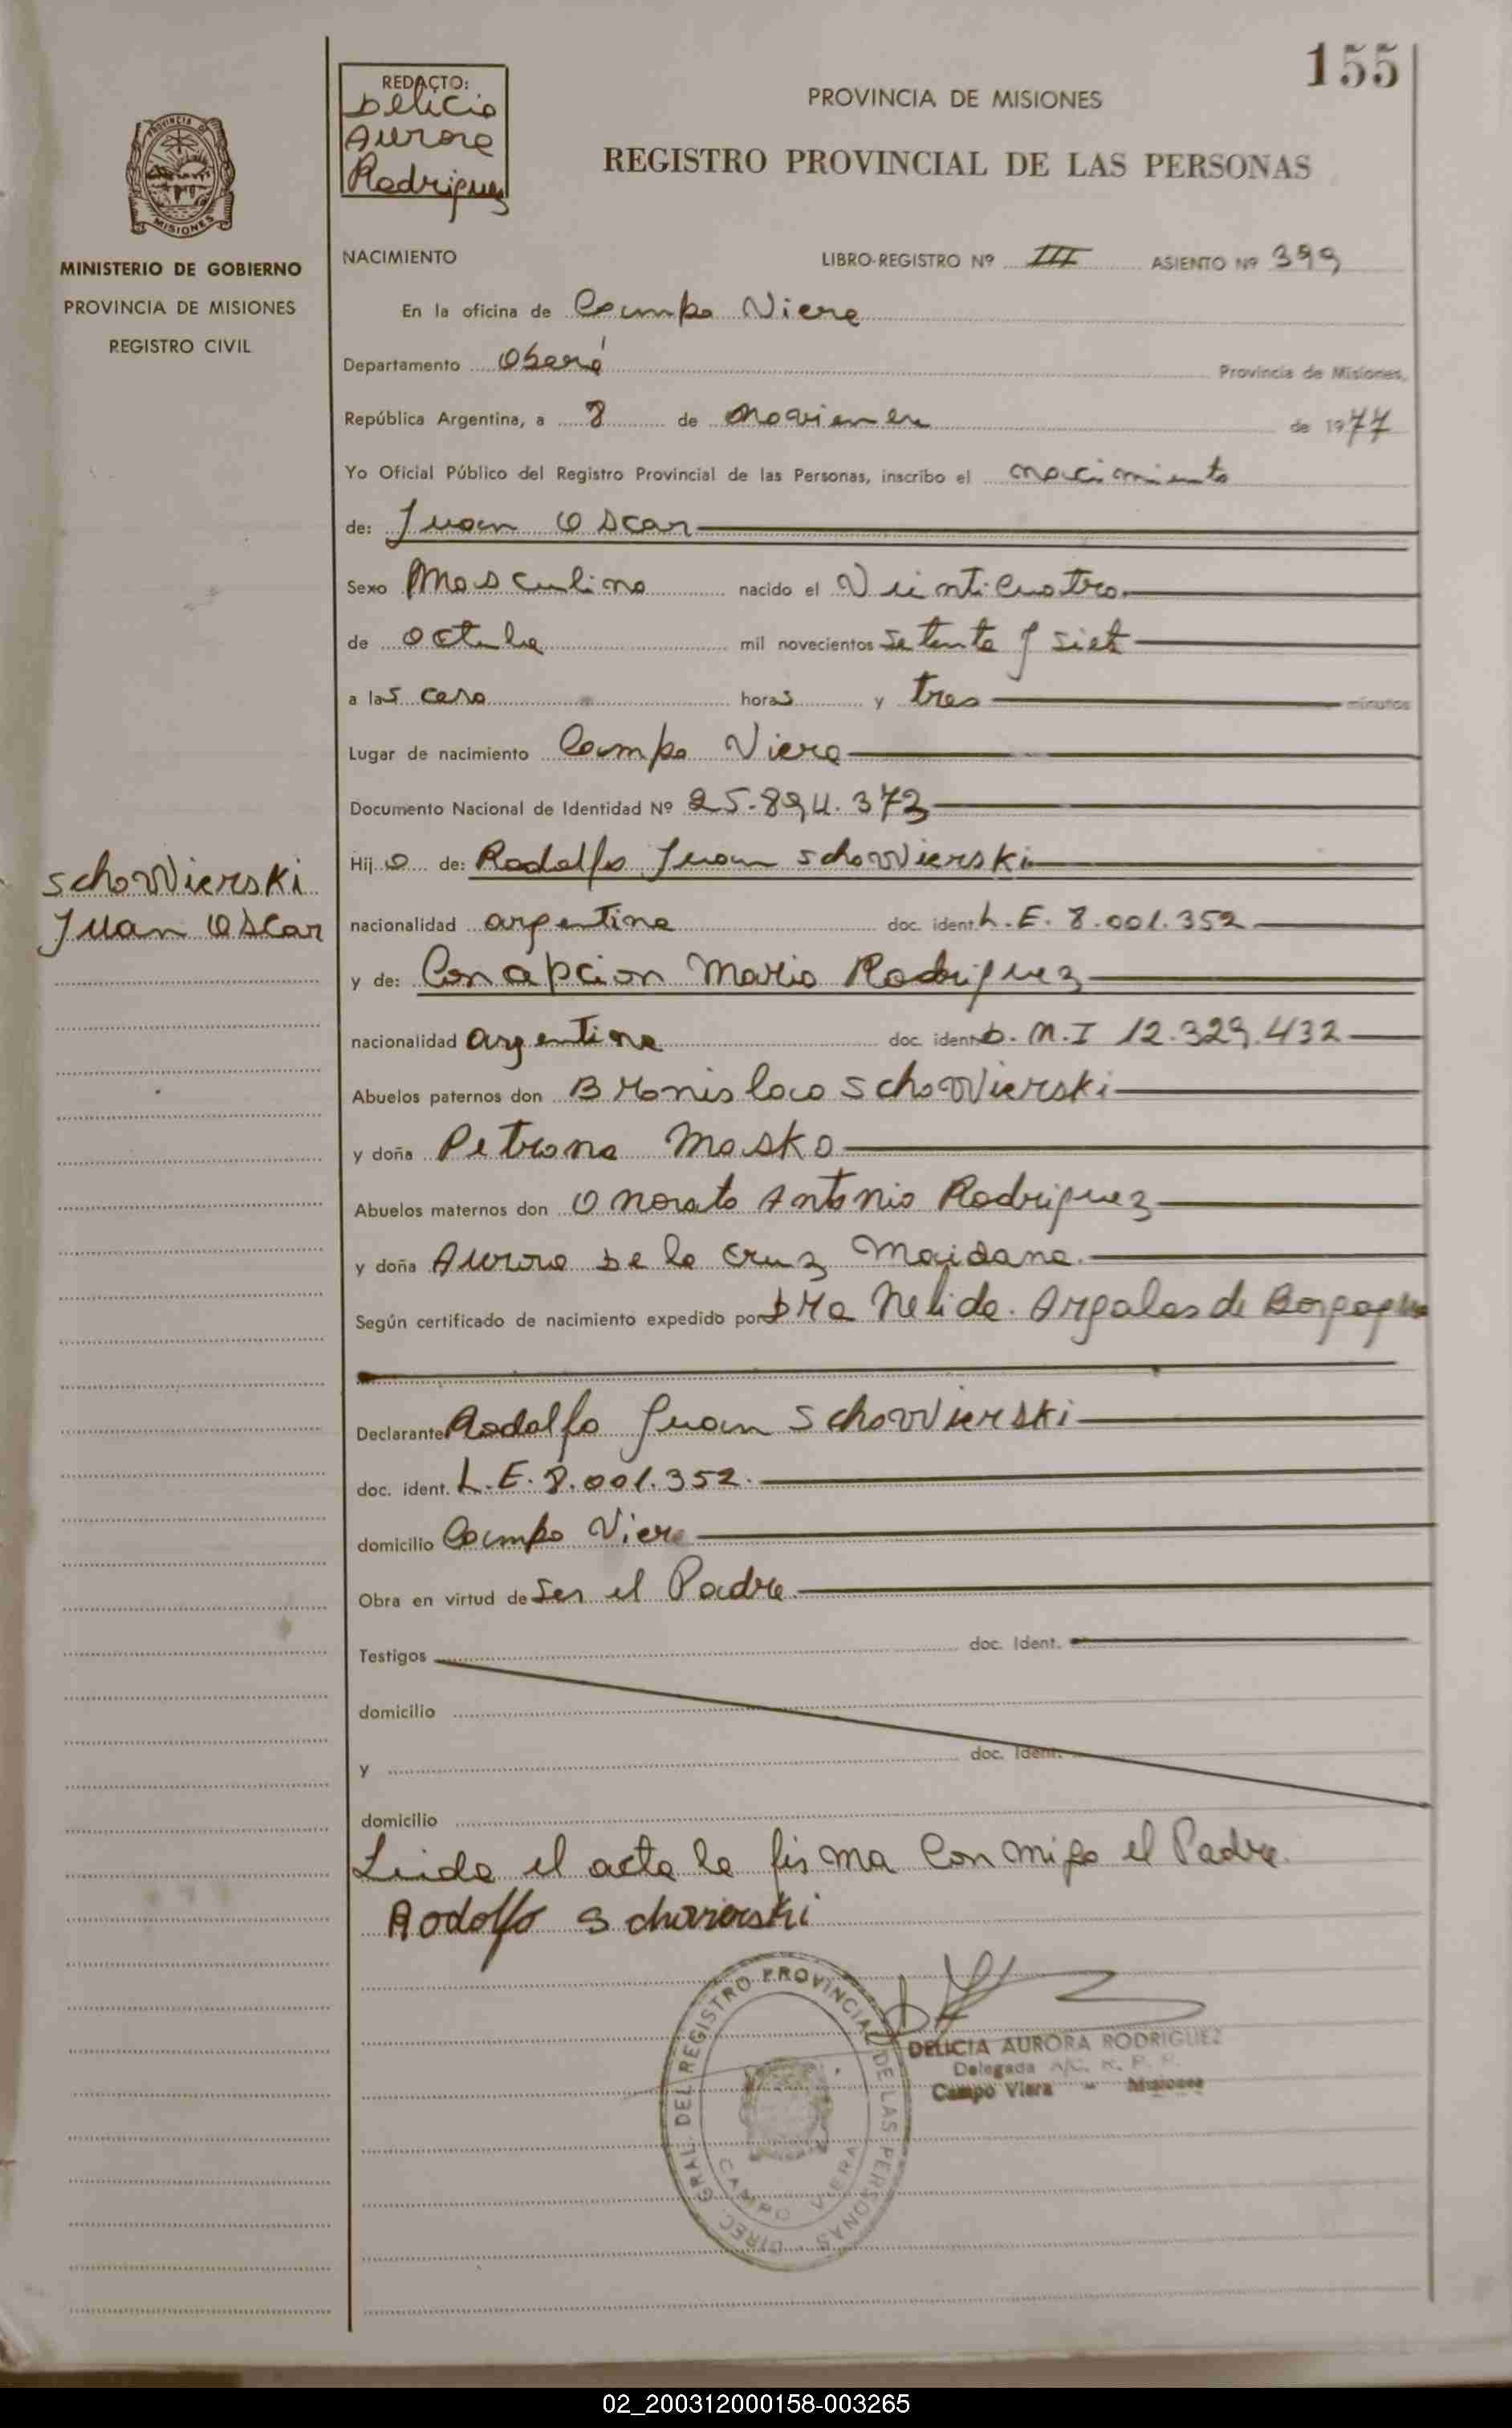 155
REDACTO:
Delicia
Aurora
Rodriguez
PROVINCIA DE MISIONES
REGISTRO PROVINCIAL DE LAS PERSONAS
PROVINCIA DE
MISIONES
MINISTERIO DE GOBIERNO
PROVINCIA DE MISIONES
REGISTRO CIVIL
NACIMIENTO LIBRO-REGISTRO Nº III ASIENTO Nº 399
En la oficina de Campo Viera
Departamento Oberá Provincia de Misiones,
República Argentina, a 8 de noviembre de 1977
Yo Oficial Público del Registro Provincial de las Personas, inscribo el nacimiento
de: Juan Oscar
Sexo Masculino nacido el Veinticuatro
de octubre mil novecientos setenta y siete
a las cero horas y tres minutos
Lugar de nacimiento Campo Viera
Documento Nacional de Identidad Nº 25.894.373
Hijo de: Rodolfo Juan Schowierski
Schowierski
Juan Oscar
nacionalidad argentina doc. ident. L.E. 8.001.352
y de: Concepcion Maria Rodriguez
nacionalidad argentina doc. ident. D.N.I 12.329.432
Abuelos paternos don Bronislaco Schowierski
y doña Petrona Masko
Abuelos maternos don Onorato Antonio Rodriguez
y doña Aurora De la Cruz Maidana.
Según certificado de nacimiento expedido por Dra Nelida. Argalas de
Declarante Rodolfo Juan Schowierski
doc. ident. L.E. 8.001.352.
domicilio Campo Viera
Obra en virtud de ser el Padre.
Testigos doc. Ident.
domicilio
y doc. Ident.
domicilio
Leida el acta la firma Conmigo el Padre.
Rodolfo Schovierski
DIREC. GRAL. DEL REGISTRO PROVINCIAL DE LAS PERSONAS
CAMPO VIERA
DELICIA AURORA RODRIGUEZ
Delegada A/C. R. P. P.
Campo Viera - Misiones
02_200312000158-003265